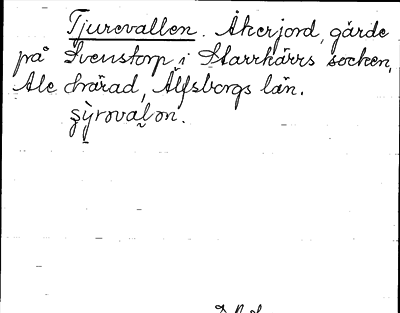 Tjurevallen. Åkerjord, gärde
på Svenstorp i Starrkärrs socken,
Ale härad, Älfsborgs län.